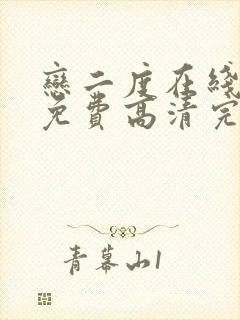 戀二度在綫
免費高清完
青幕山1